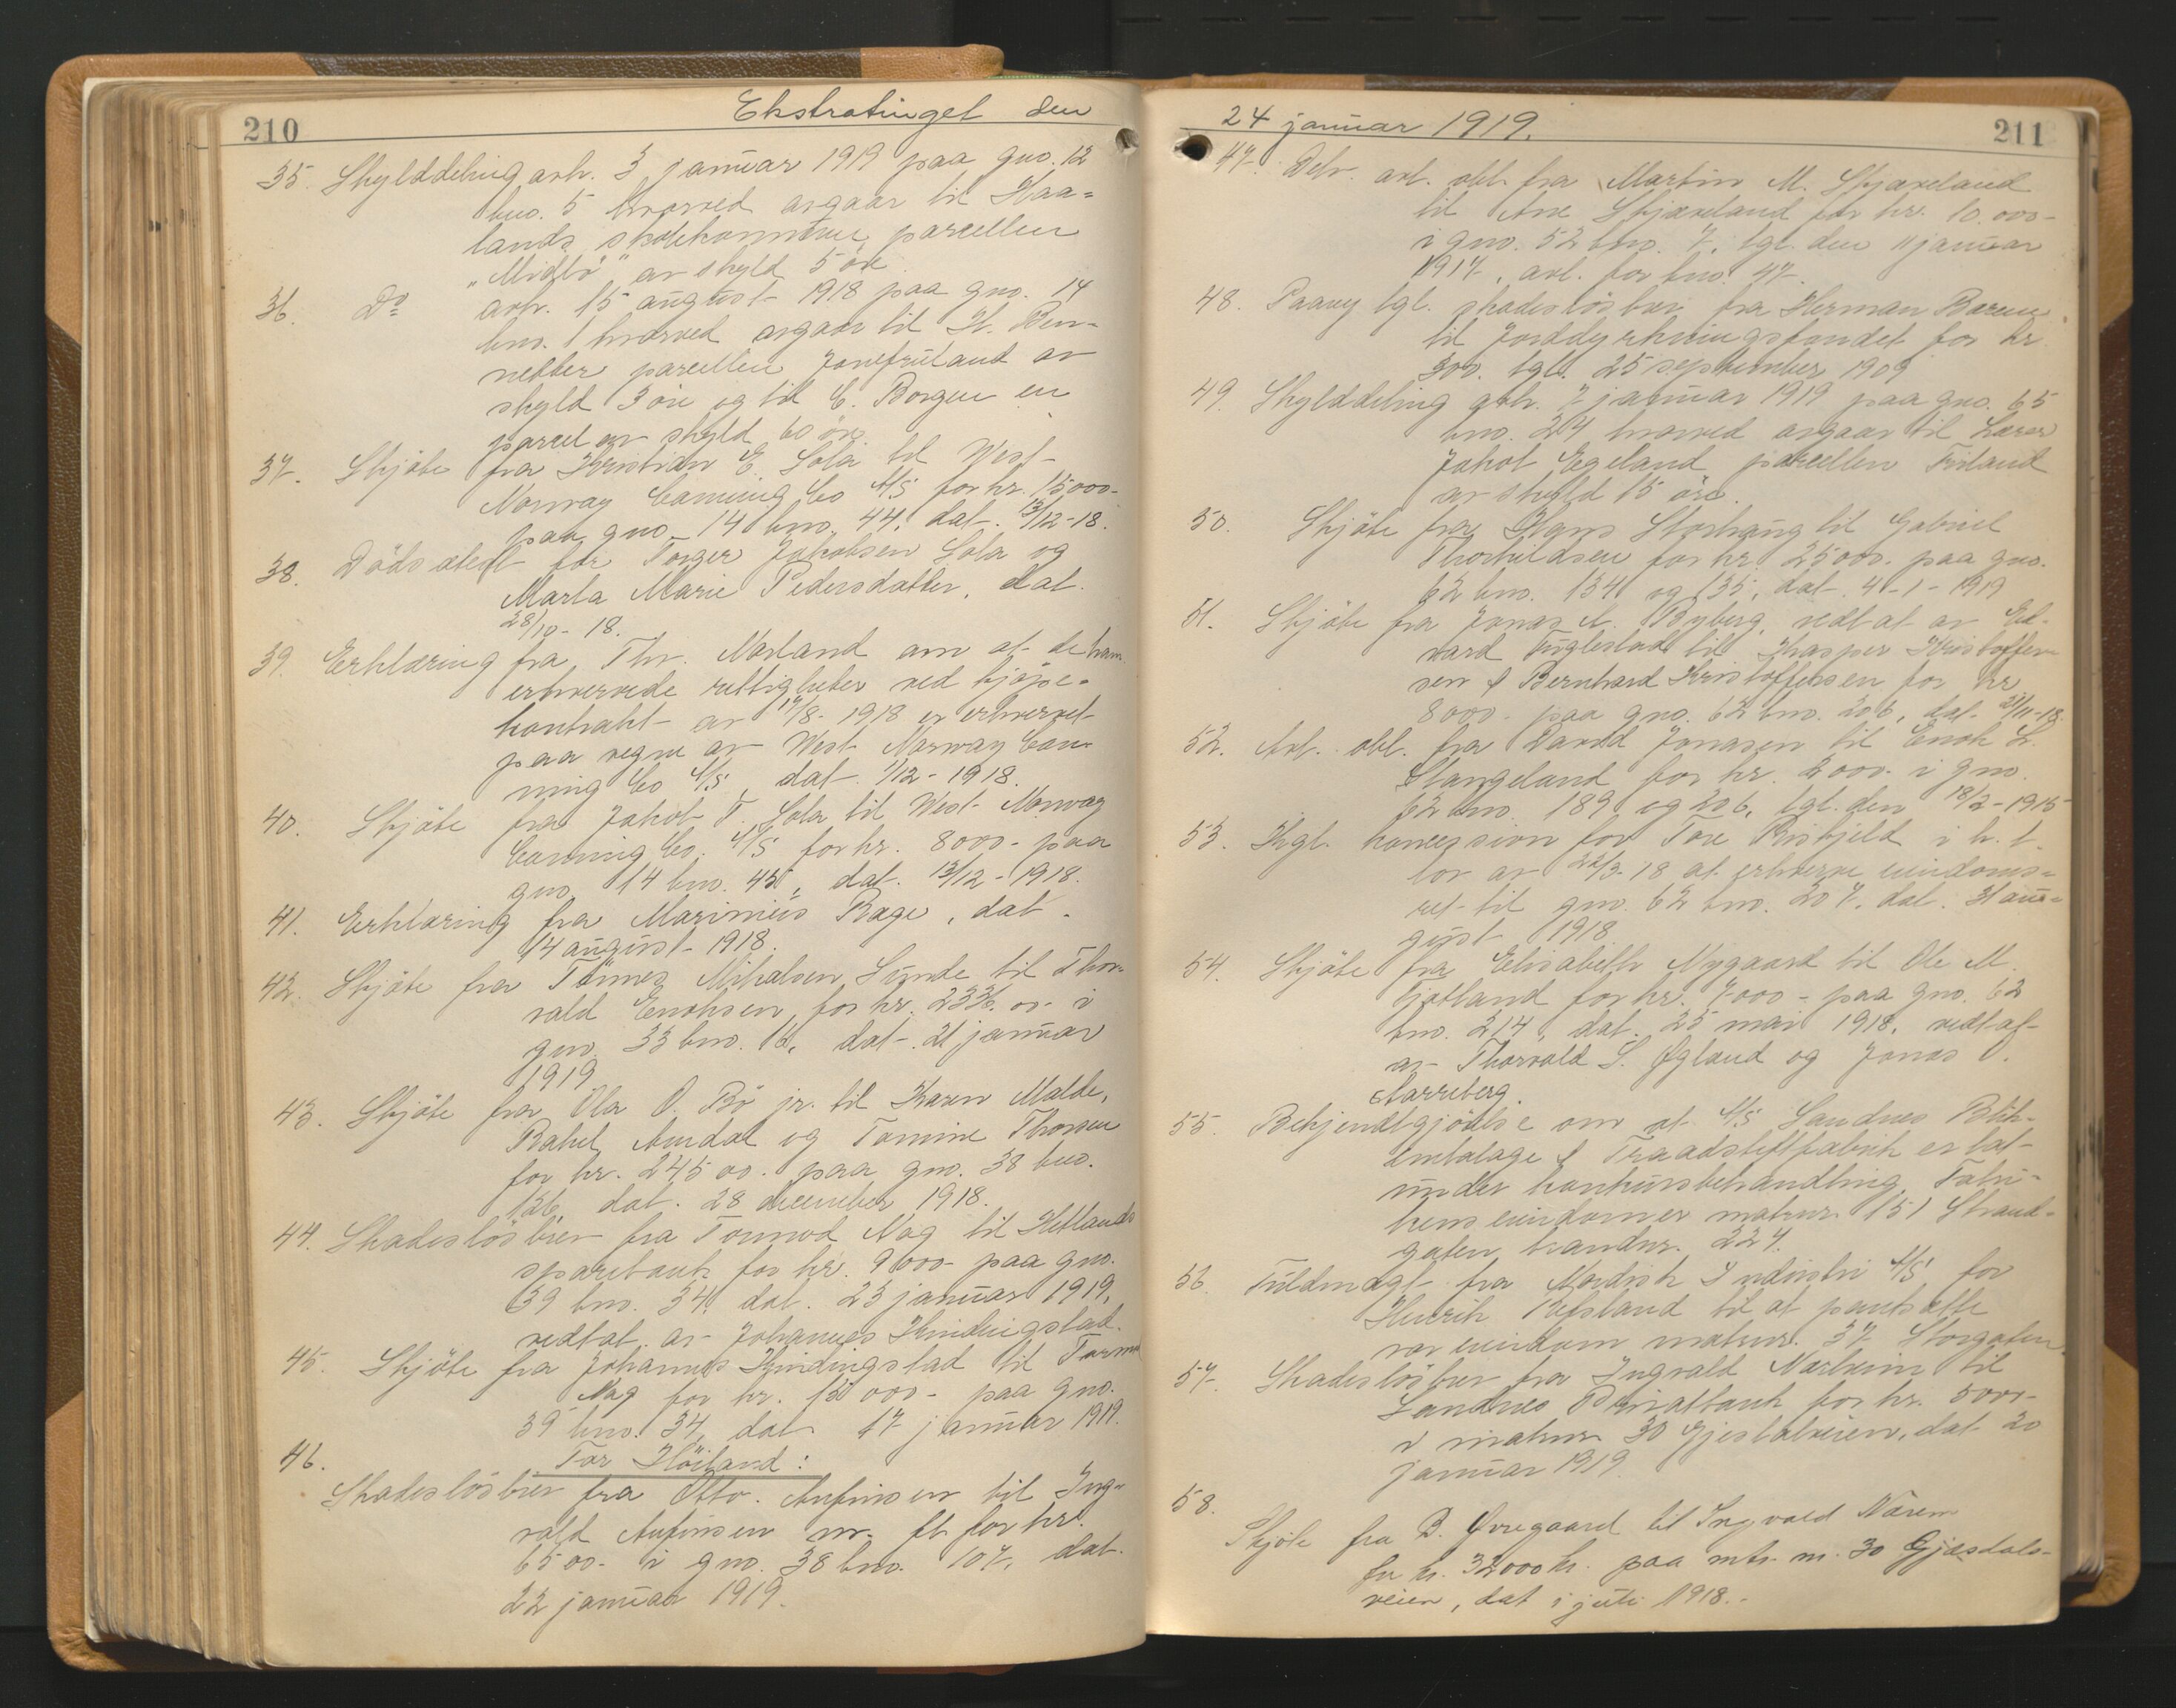 210
Ekstratinget den
35. Skylddeling avh. 3 januar 1919 paa gno. 12
bno. 5 hvorved avgaar til Haa-
lands skolekommune parcellen
"Midbö" av skyld 5 öre.
36. Do avh. 15 august 1918 paa gno. 14
bno. 1 hvorved avgaar til H. Ben-
netter parcellen Jonefruland av
skyld 3 öre og til E. Borgen en
parcel av skyld 60 öre.
37. Skjöte fra Kristian E. Sola til West-
Norway Canning Co A/S for kr. 15000-
paa gno. 14 bno. 44, dat. 13/12-18.
38. Dödsatest for Torger Jakobsen Sola og
Marta Marie Pedersdatter, dat.
28/10-18.
39. Erklæring fra Thv. Norland om at de ham
erhvervede rettigheter ved kjöpe-
kontrakt av 17/8-1918 er erhvervet
paa vegne av West Norway Can-
ning Co A/S, dat. 1/12-1918.
40. Skjöte fra Jakob T. Sola til West Norway
Canning Co. A/S for kr. 8000- paa
gno. 14 bno. 45, dat. 13/12-1918.
41. Erklæring fra Marinius Rage, dat.
14 august 1918.
42. Skjöte fra Tönnes Mikalsen Sunde til Thor-
vald Enoksen for kr. 2336.00- i
gno. 33 bno. 12, dat. 21 januar
1919
43. Skjöte fra Ola O. Bö jr. til Karen Malde,
Rakel Aurdal og Tomine Thorsen
for kr. 24500- paa gno. 38 bno.
126, dat. 28 december 1918.
44. Skadeslösbrev fra Tormod Nag til Hetlands
sparebank for kr. 9000- paa gno.
39 bno. 34, dat. 23 januar 1919,
vedtat av Johannes Kindingstad.
45. Skjöte fra Johannes Kindingstad til Tormod
Nag for kr. 15000- paa gno.
39 bno. 34, dat 17 januar 1919.
46. For Höiland:
Skadeslösbrev fra Otto Anfinsen til Ing-
vald Anfinsen m. fl. for kr.
6500- i gno. 38 bno. 107, dat.
22 januar 1919.
24 januar 1919.
211
47. Delv. avl. obl. fra Martin M. Skjæveland
til Ane Skjæveland for kr. 10.000-
i gno. 52 bno. 7, tgl. den 11 januar
1917, avl. for bno. 47.
48. Paany tgl. skadeslösbrev fra Herman
til Jorddyrkningsfondet for kr
300. tgl. 25 september 1909
49. Skylddeling avh. 7 januar 1919 paa gno. 65
bno. 24 hvorved avgaar til Lærer
Jakob Egeland parcellen Friland
av skyld 15 öre.
50. Skjöte fra Hans Storhaug til Gabriel
Thorkildsen for kr. 25000. paa gno.
62 bno. 134 og 135, dat. 4-1-1919
51. Skjöte fra Jonas A. Byberg, vedtat av Ed-
vard Fuglestad til Kasper Kristoffer-
sen & Bernhard Kristoffersen for kr
8000- paa gno. 62 bno. 206, dat. 21/11-18.
52. Avl. obl. fra David Jonasen til Enok L.
Stangeland for kr. 2000- i gno.
62 bno. 189 og 206, tgl. den 18/2-1915
53. Kgl. koncession for Tore Riskjeld i h. t.
lov av 22/3-18 at erhverve eiendoms-
ret til gno. 62 bno. 207, dat. 31 au-
gust 1918
54. Skjöte fra Elisabeth Nygaard til Ole M.
Tjotland for kr. 7000- paa gno. 62
bno. 214, dat. 25 mai 1918, vedtat
av Thorvald S. Øgland og Jonas O.
Aarreberg.
55. Bekjendtgjörelse om at A/S Sandnes Blik-
emballage & Traadstiftfabrik er tat
under konkursbehandling. Fabri-
kens eiendom er matrnr. 151 Strand-
gaten, brandnr. 227.
56. Fuldmagt fra Nordisk Industri A/S for
Henrik Refsland til at pantsætte
vor eiendom matrnr. 37 Storgaten.
57. Skadeslösbrev fra Ingvald Nærheim til
Sandnes Privatbank for kr. 5000-
i matrnr 30 Gjesdalveien, dat 20
januar 1919.
58. Skjöte fra B. Øvregaard til Ingvald Närem
for kr. 32000 kr. paa mtr. nr. 30 Gjesdals-
veien, dat i juli 1918.-